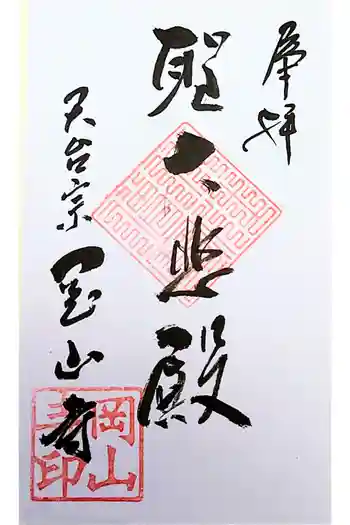 奉拝
聖大悲殿
天台宗 岡山寺
岡山
寺印